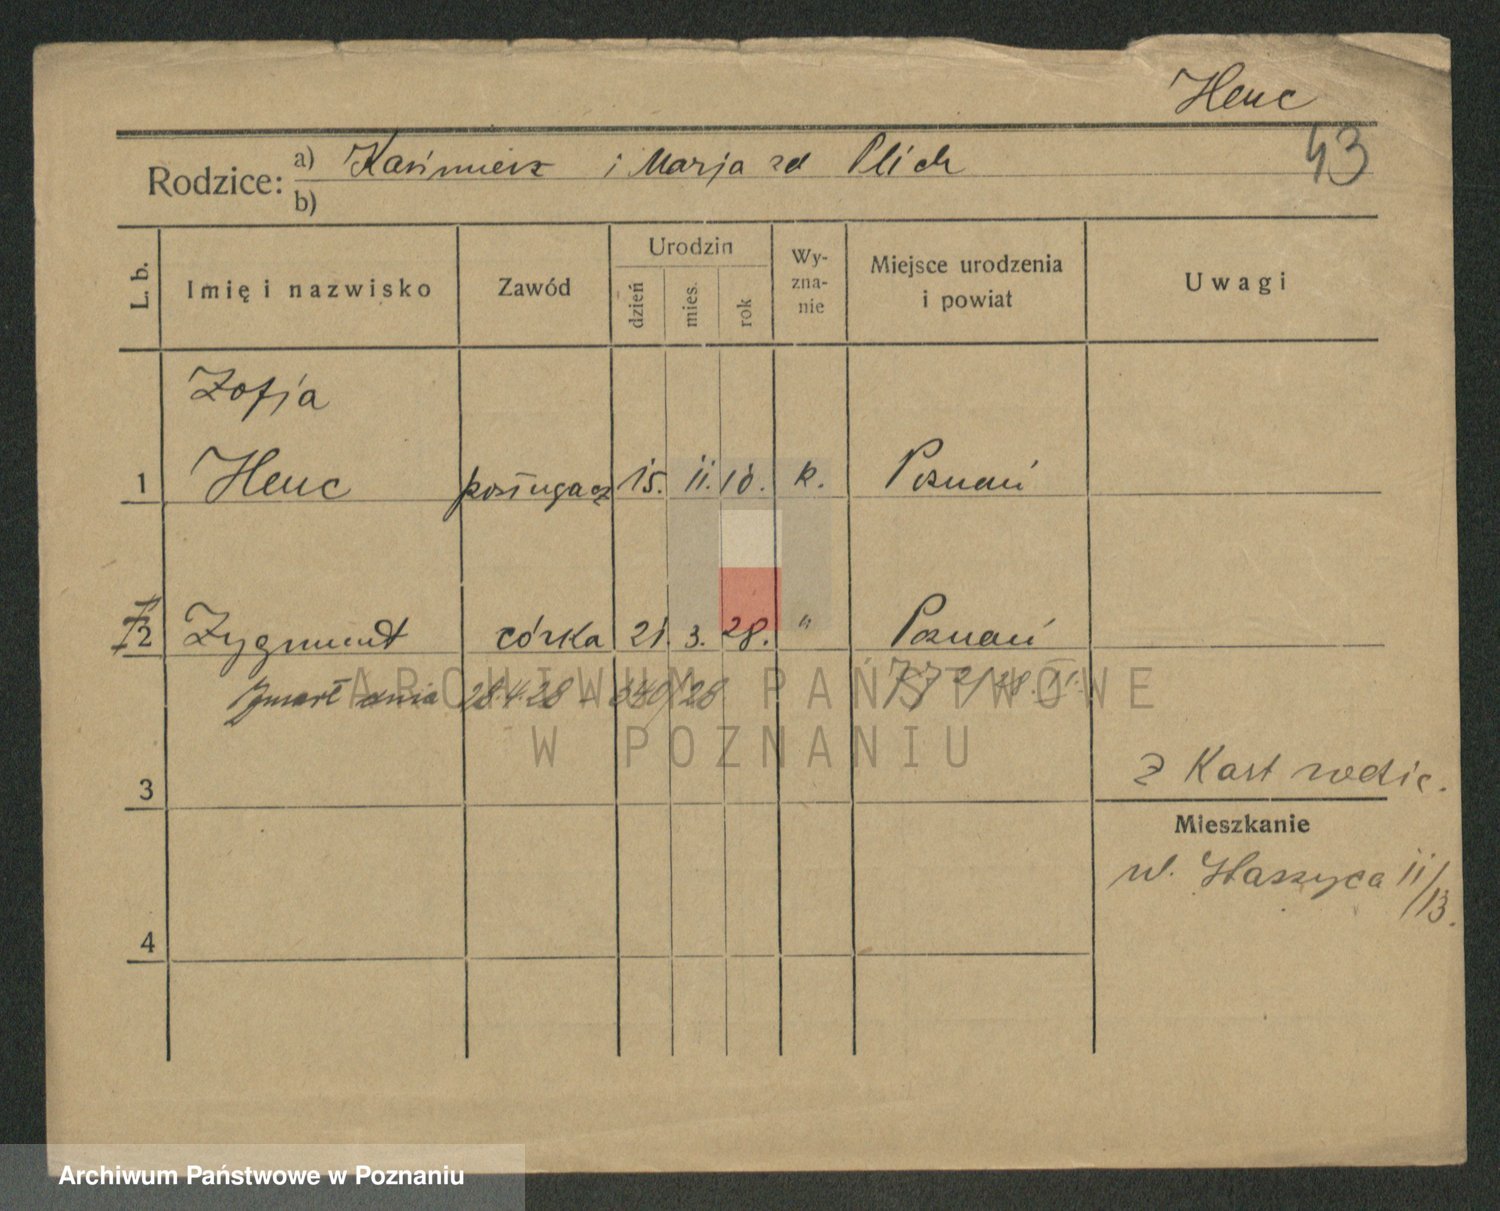 Henc
43
Rodzice: a) Kazimierz i Marja zd Plich
b)
L. b. Imię i nazwisko Zawód Urodzin dzień mies. rok Wy-zna-nie Miejsce urodzenia i powiat Uwagi
Zofja
1 Henc posługacz 15. 11. 10. k. Poznań
2 Zygmunt córka 21. 3. 28. " Poznań
Zmarł dnia 28.4.28 - 640/28
ARCHIWUM PAŃSTWOWE
W POZNANIU
3 z Kart rodzic.
Mieszkanie
ul. Staszyca 11/13.
4
Archiwum Państwowe w Poznaniu